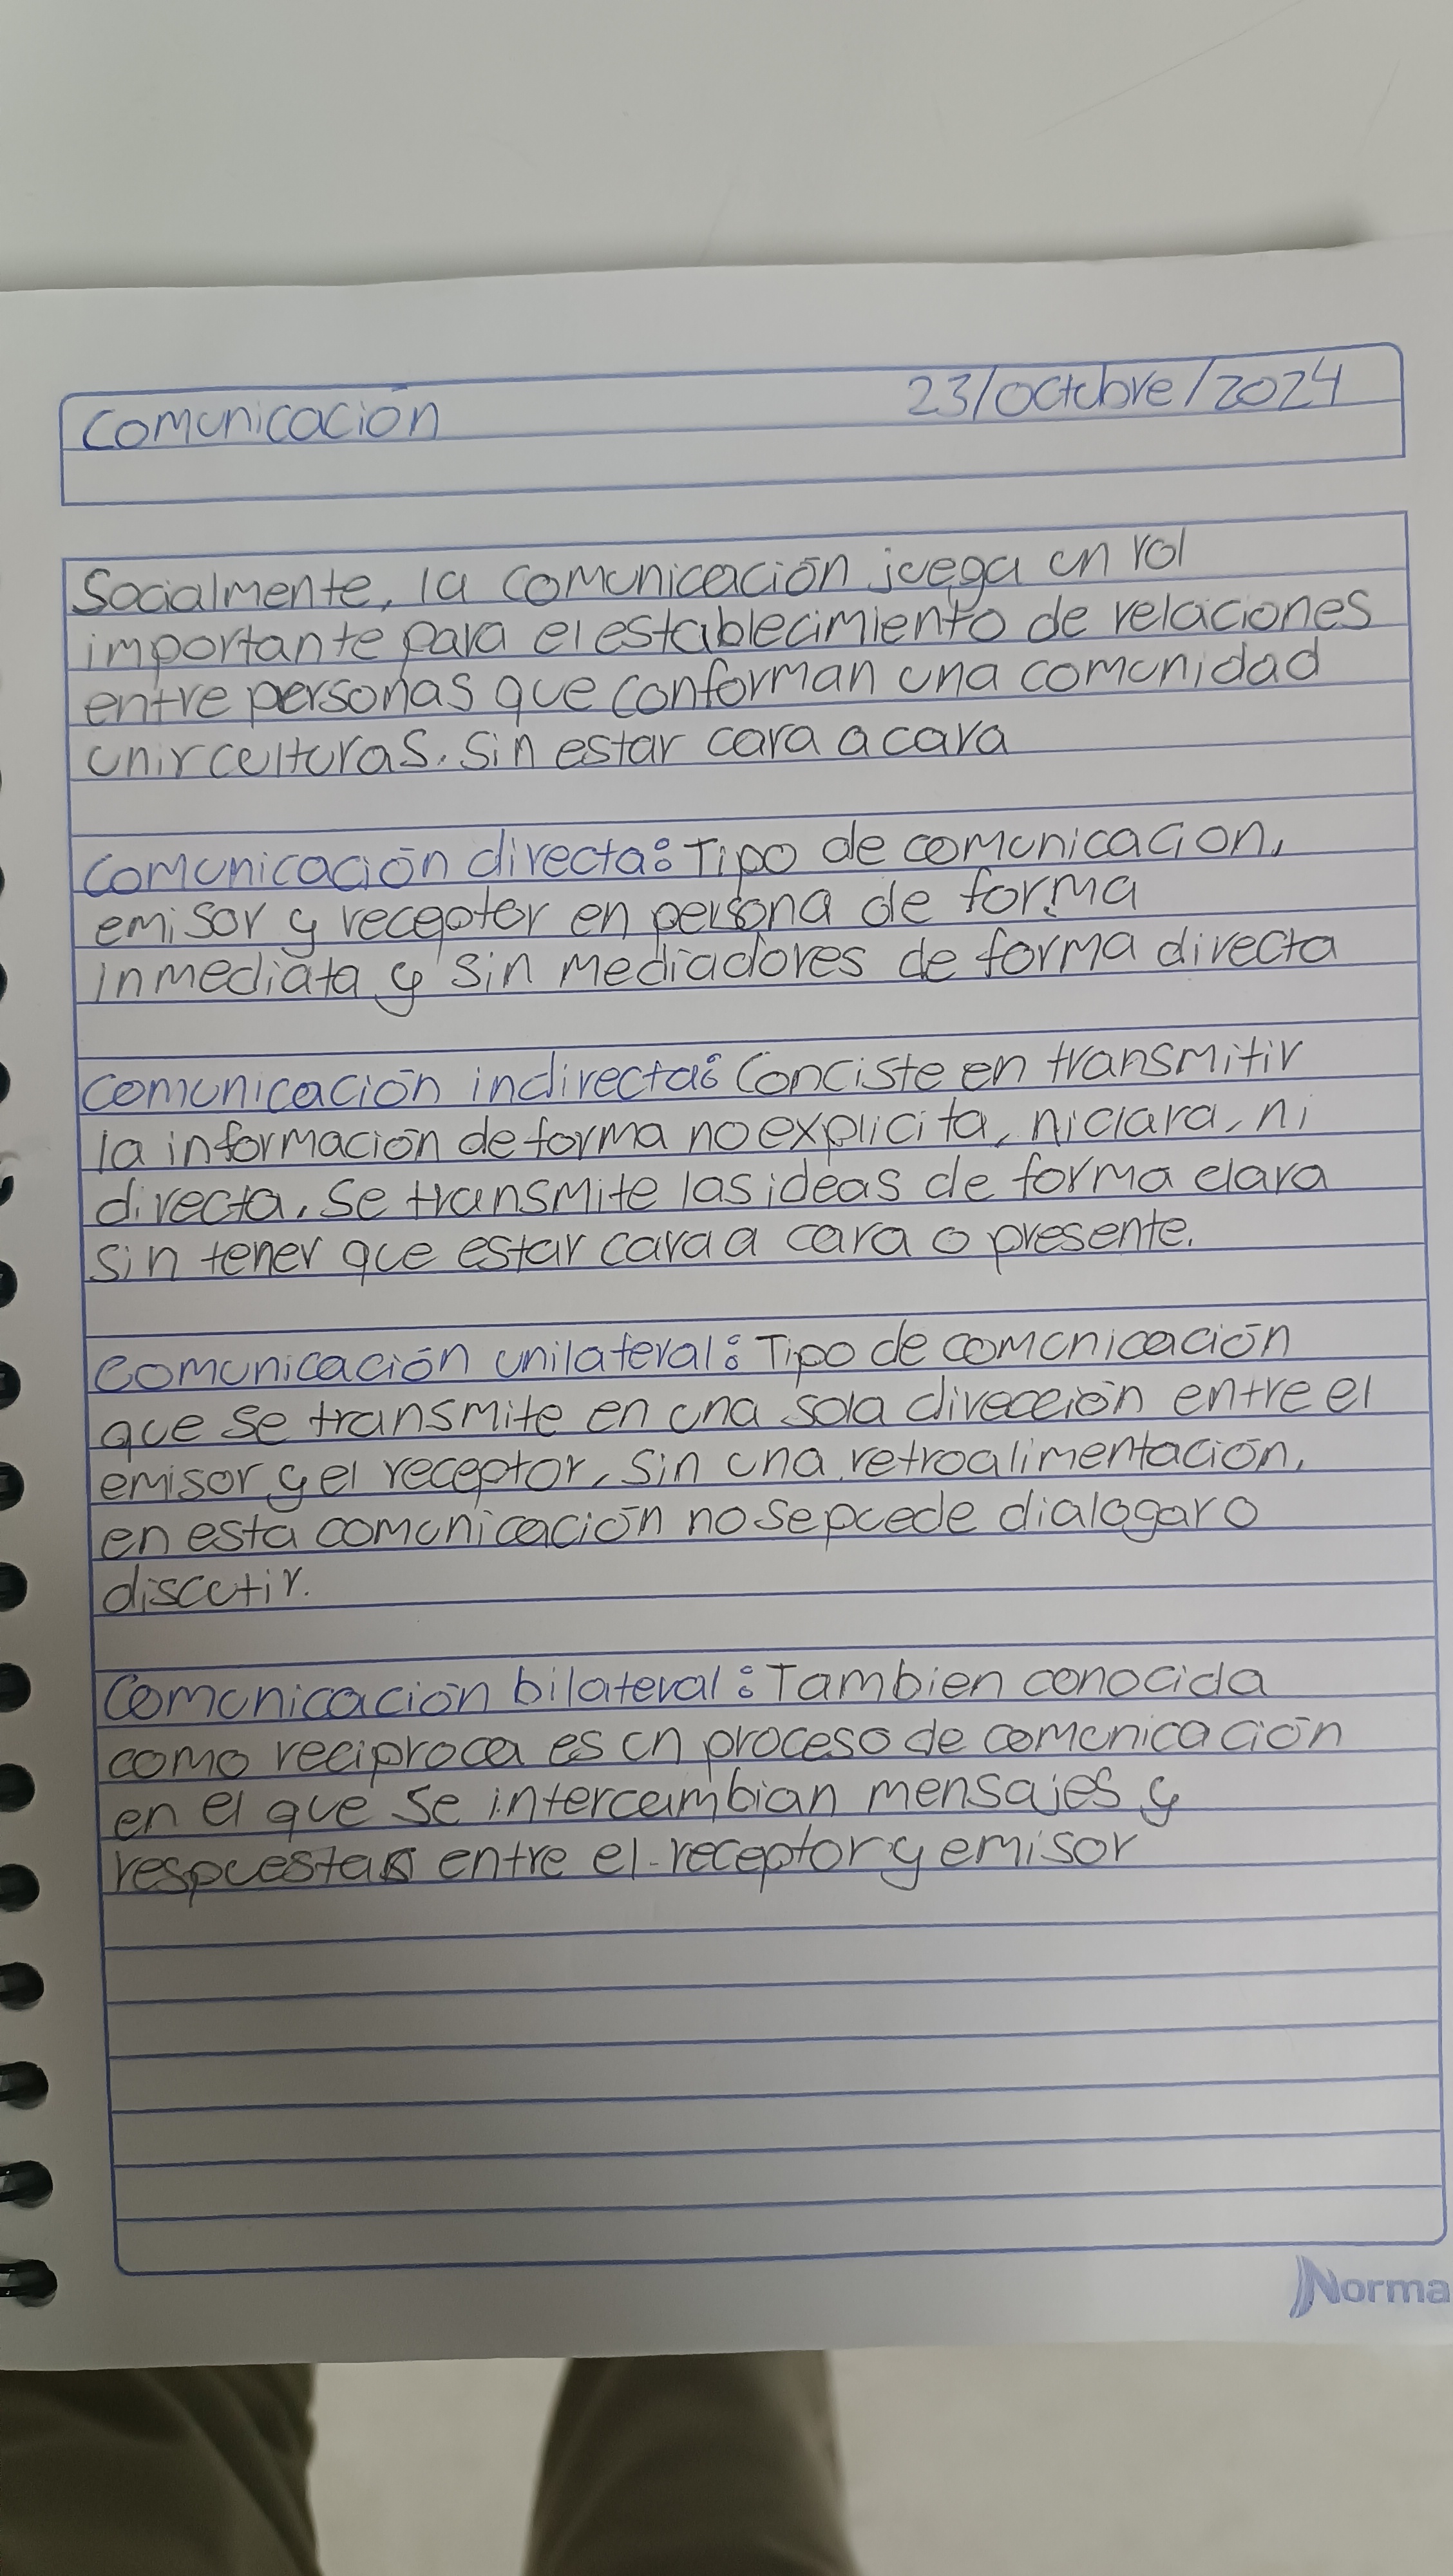 Comunicación
23/octubre/2024
Socialmente, la comunicación juega un rol
importante para el establecimiento de relaciones
entre personas que conforman una comunidad
unir culturas. Sin estar cara a cara
Comunicación directa: Tipo de comunicacion,
emisor y receptor en persona de forma
inmediata y sin mediadores de forma directa
Comunicación indirecta: Conciste en transmitir
la información de forma no explicita, ni clara, ni
directa. Se transmite las ideas de forma clara
sin tener que estar cara a cara o presente.
Comunicación unilateral: Tipo de comunicación
que se transmite en una sola direcceión entre el
emisor y el receptor, sin una retroalimentación,
en esta comunicación no se puede dialogar o
discutir.
Comunicación bilateral: Tambien conocida
como reciproca es un proceso de comunicación
en el que se intercambian mensajes y
respuestas entre el receptor y emisor
Norma